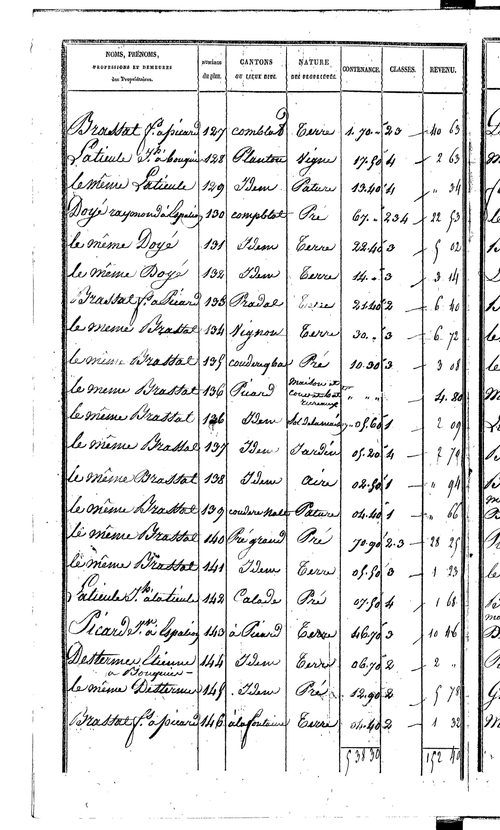 NOMS, PRÉNOMS, PROFESSIONS ET DEMEURES des Propriétaires. | NUMÉROS du plan. | CANTONS OU LIEUX DITS. | NATURE DES PROPRIÉTÉS. | CONTENANCE. | CLASSES. | REVENU.
Brassat fs. a picard 127 complat Terre 1. 70. " 2 3 40 63
Laticule Jh. à 128 Plantou Vigne 17. 50 4 2 63
le même Laticule 129 Idem Pature 13. 40 4 " 34
Doyé raymond à Lespatiou 130 complat Pré 67. " 2 3 4 22 53
le même Doyé 131 Idem Terre 22. 40 3 5 02
le même Doyé 132 Idem Terre 14. " 3 3 14
Brassat fs. a Picard 133 Pradal Terre 21. 40 2 6 40
le même Brassat 134 Vignou Terre 30. " 3 6 72
le même Brassat 135 Pré 10. 30 3 3 08
le même Brassat 136 Picard Maison et " " " 4. 80
le même Brassat 136 Idem Sol de la maison 05. 60 1 2 09
le même Brassat 137 Idem Jardin 05. 20 4 2 79
le même Brassat 138 Idem Aire 02. 50 1 " 94
le même Brassat 139 Pature 04. 40 1 " 66
le même Brassat 140 Pré grand Pré 70. 90 2. 3 28 25
le même Brassat 141 Idem Terre 05. 50 3 1 23
Laticule Jh. a laticule 142 Calade Pré 07. 50 4 1 68
Picard Jn. à Lespatiou 143 à Picard Terre 46. 70 3 10 46
Desterme Etienne 144 Idem Terre 06. 70 2 2 "
à
le même Desterme 145 Idem Pré 12. 90 2 5 78
Brassat fs. a picard 146 à la fontaine Terre 04. 40 2 1 32
5 38 30 152 40